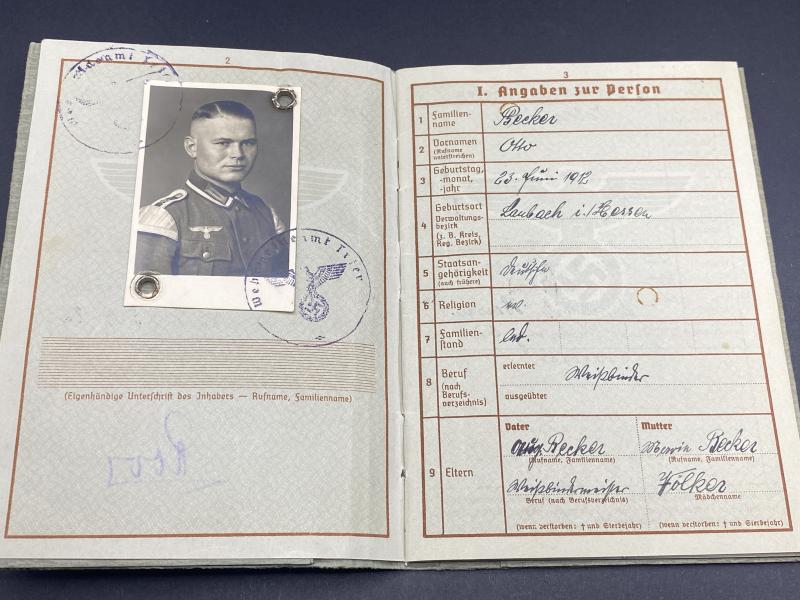 2
(Eigenhändige Unterschrift des Inhabers — Rufname, Familienname)
3
I. Angaben zur Person
1 Familien-
name
Becker
2 Vornamen
(Rufname
unterstreichen)
Otto
3 Geburtstag,
-monat,
-jahr
23. Juni 1912
4 Geburtsort
Verwaltungs-
bezirk
(z. B. Kreis,
Reg. Bezirk)
Laubach i./Hessen
5 Staatsan-
gehörigkeit
(auch frühere)
6 Religion
ev.
7 Familien-
stand
led.
8 Beruf
(nach
Berufs-
verzeichnis)
erlernter
Weißbinder
ausgeübter
9 Eltern
Vater
Mutter
Aug. Becker
Becker
(Rufname, Familienname)
(Rufname, Familienname)
Weißbindermeister
Völker
Beruf (nach Berufsverzeichnis)
Mädchenname
(wenn verstorben: † und Sterbejahr)
(wenn verstorben: † und Sterbejahr)